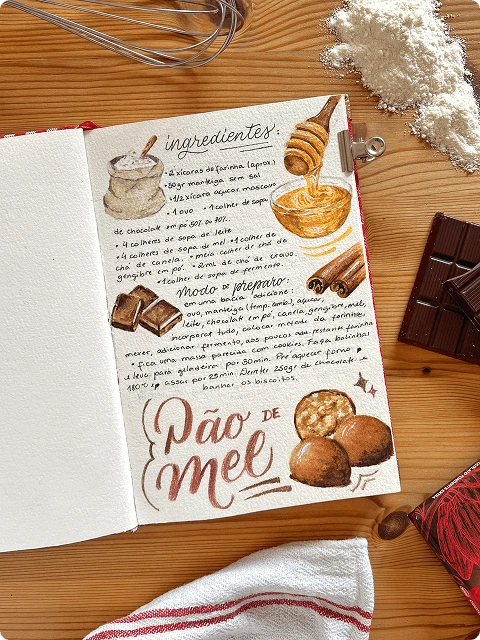 ingredientes:
• 2 xícaras de farinha (aprox.)
• 80gr manteiga sem sal
• 1/2 xícara açúcar mascavo
• 1 ovo • 1 colher de sopa
de chocolate em pó 50% ou 70%.
• 4 colheres de sopa de leite
• 4 colheres de sopa de mel • 1 colher de
chá de canela. • meia colher de chá de
gengibre em pó. • 2ml de chá de cravo.
• 1 colher de sopa de fermento.
Modo de preparo:
em uma bacia adicione:
ovo, manteiga (temp. amb.), açúcar,
leite, chocolate em pó, canela, gengibre, mel,
incorporar tudo, colocar metade da farinha
mexer, adicionar fermento, aos poucos add. restante farinha
• fica uma massa parecida com cookies. Faça bolinhas
e leve para geladeira por 30min. Pré aquecer forno
180° e assar por 25min. Derreter 250gr de chocolate e
banhar os biscoitos.
Pão DE
Mel